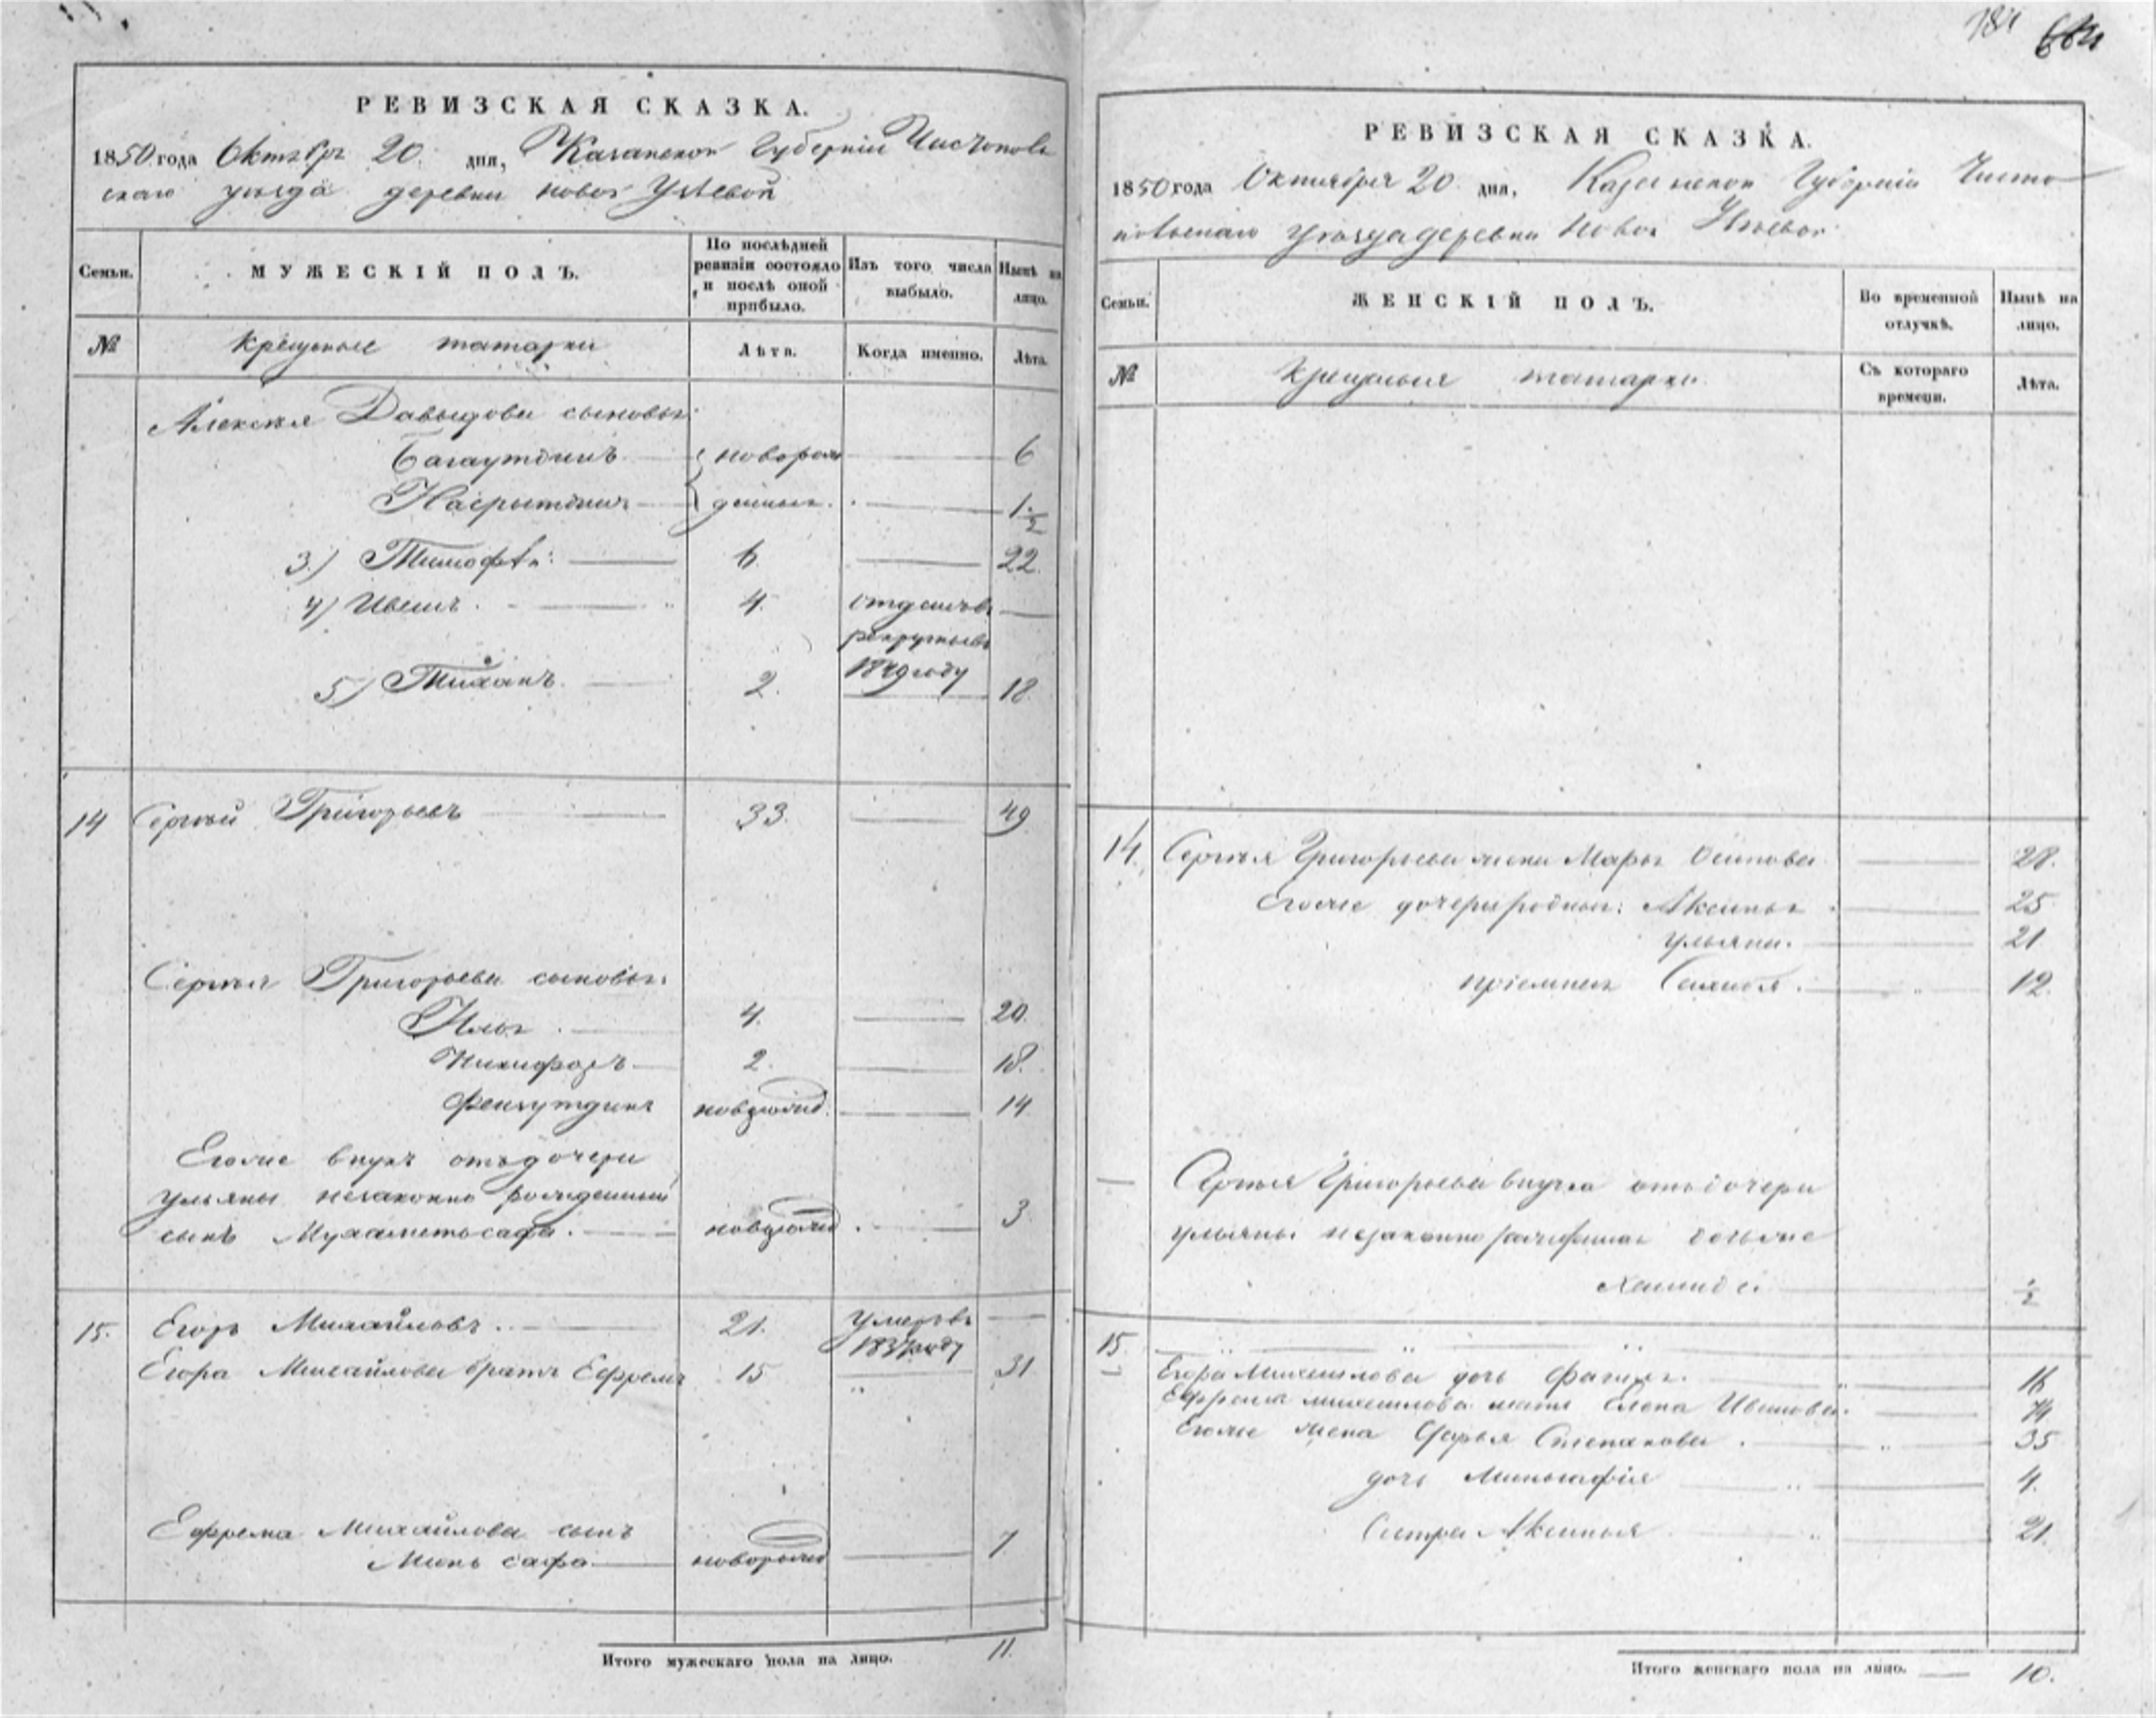 РЕВИЗСКАЯ СКАЗКА.
1850 года Октября 20 дня, Казанской Губерніи Чистополь
скаго уѣзда деревни Новой
Семьи.
МУЖЕСКІЙ ПОЛЪ.
По послѣдней ревизіи состояло и послѣ оной прибыло.
Изъ того числа выбыло.
Нынѣ на лицо.
№
крещеные татары
Лѣта.
Когда именно.
Лѣта.
Алексѣя Давыдова сыновья:
Багаутдинъ новорож 6
Насрытдинъ денные. 1 1/2
3.) Тимофѣй 6. 22.
4) Иванъ. 4. отданъ въ
рекруты въ
1849 году
5) 2. 18
14 Сергѣй Григорьевъ 33. 49
Сергѣя Григорьева сыновья:
Илья 4. 20.
Никифоръ 2. 18.
новорожд. 14
Его же внукъ отъ дочери
Ульяны незаконно рожденный
сынъ Мухаметьсафа. новорожд. 3
15. Егоръ Михайловъ. 21. умеръ въ
1837 году
Егора Михайлова братъ Ефремъ 15 31
Ефрема Михайлова сынъ
Минь сафа новорожд 7
Итого мужескаго пола на лицо. 11.
184
РЕВИЗСКАЯ СКАЗКА.
1850 года Октября 20 дня, Казанской Губерніи Чисто
польскаго уѣзда деревни Новой
Семьи.
ЖЕНСКІЙ ПОЛЪ.
Во временной отлучкѣ.
Нынѣ на лицо.
№
Крещеныя татарки
Съ котораго времени.
Лѣта.
14. Сергѣя Григорьева жена Марья Осипова 28.
Его же дочери родныя: Аксинья 25
Ульяна. 21
пріемная 12.
Сергѣя Григорьева внучка отъ дочери
Ульяны незаконно дочь же
1/2
15.
Егора Михайлова дочь 16
Ефрема Михайлова мать Елена Иванова. 74
Его же жена Степанова. 35
дочь Миньсафія 4.
Сестра Аксинья 21.
Итого женскаго пола на лицо. 10.